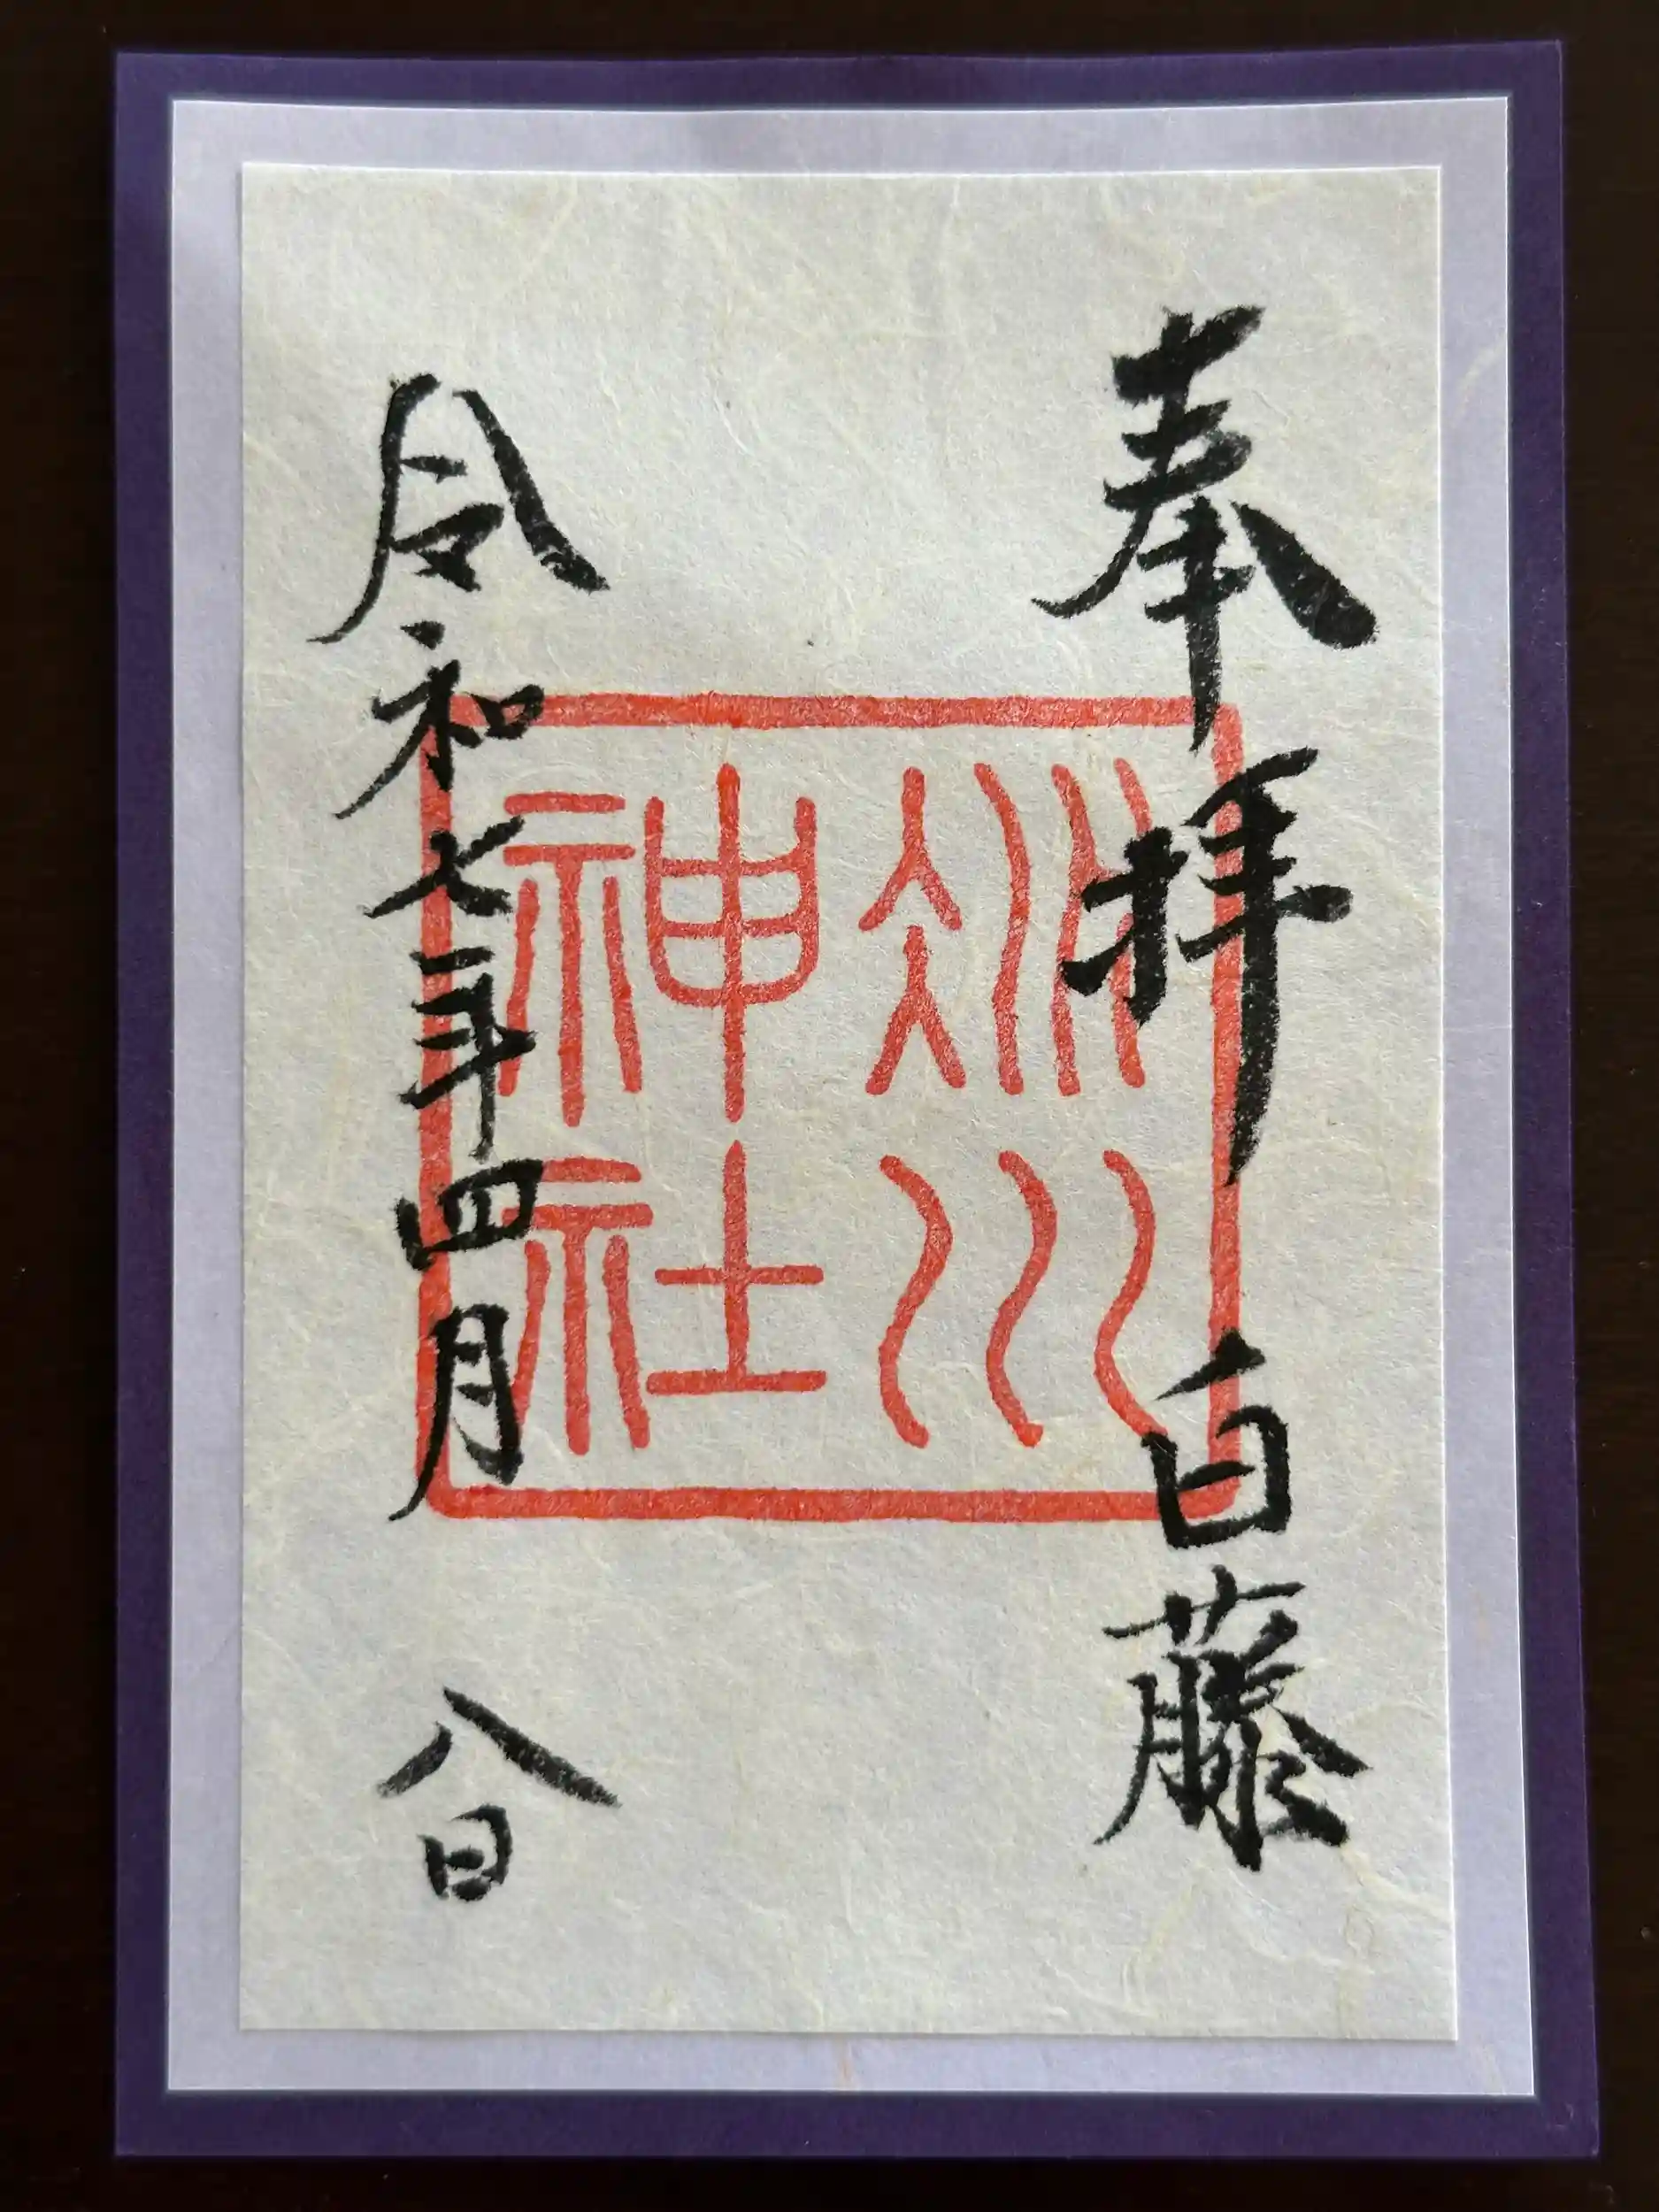 奉拝 白藤
冰川
神社
令和七年四月 八日